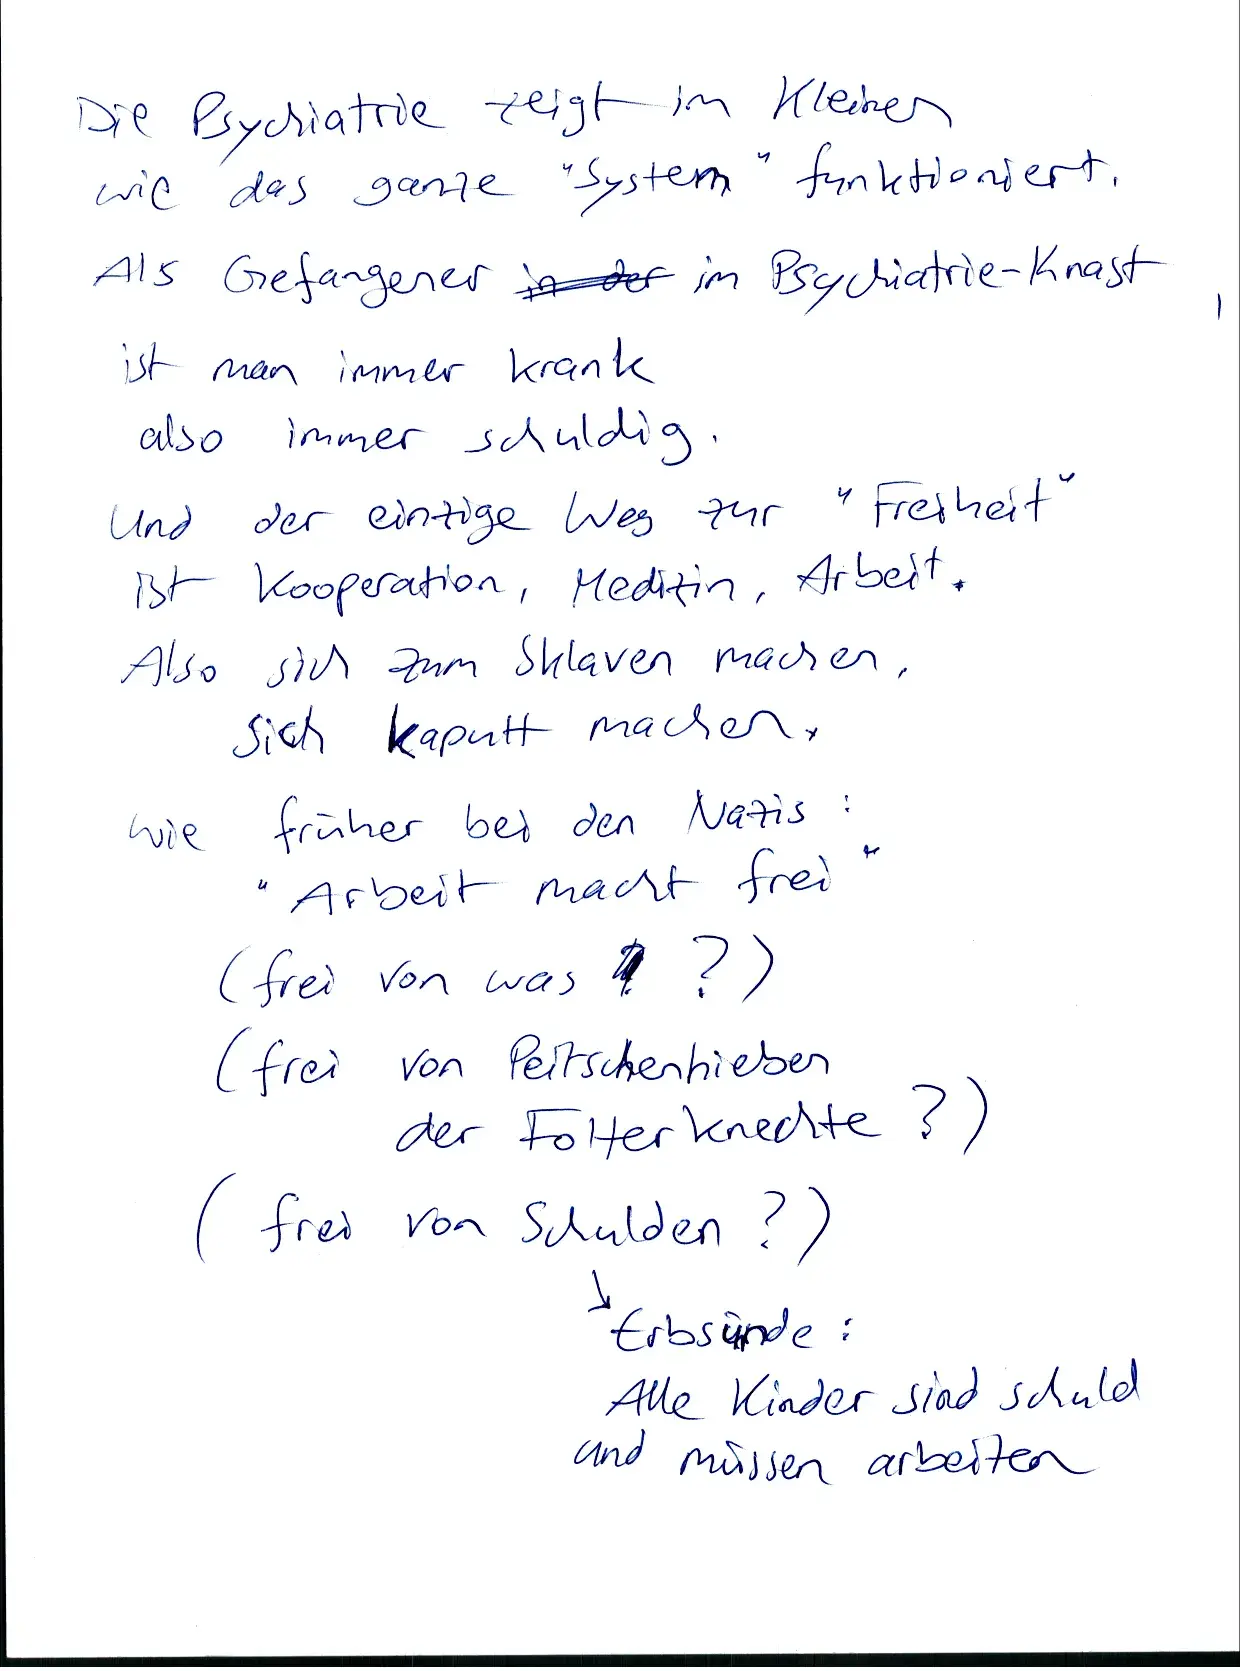 Die Psychiatrie zeigt im Kleinen
wie das ganze "System" funktioniert.
Als Gefangener in der im Psychiatrie-Knast
ist man immer krank
also immer schuldig.
Und der einzige Weg zur "Freiheit"
ist Kooperation, Medizin, Arbeit.
Also sich zum Sklaven machen,
sich kaputt machen.
wie früher bei den Nazis:
"Arbeit macht frei"
(frei von was ?)
(frei von Peitschenhieben
der Folterknechte ?)
(frei von Schulden ?)
↘ Erbsünde:
Alle Kinder sind schuld
und müssen arbeiten